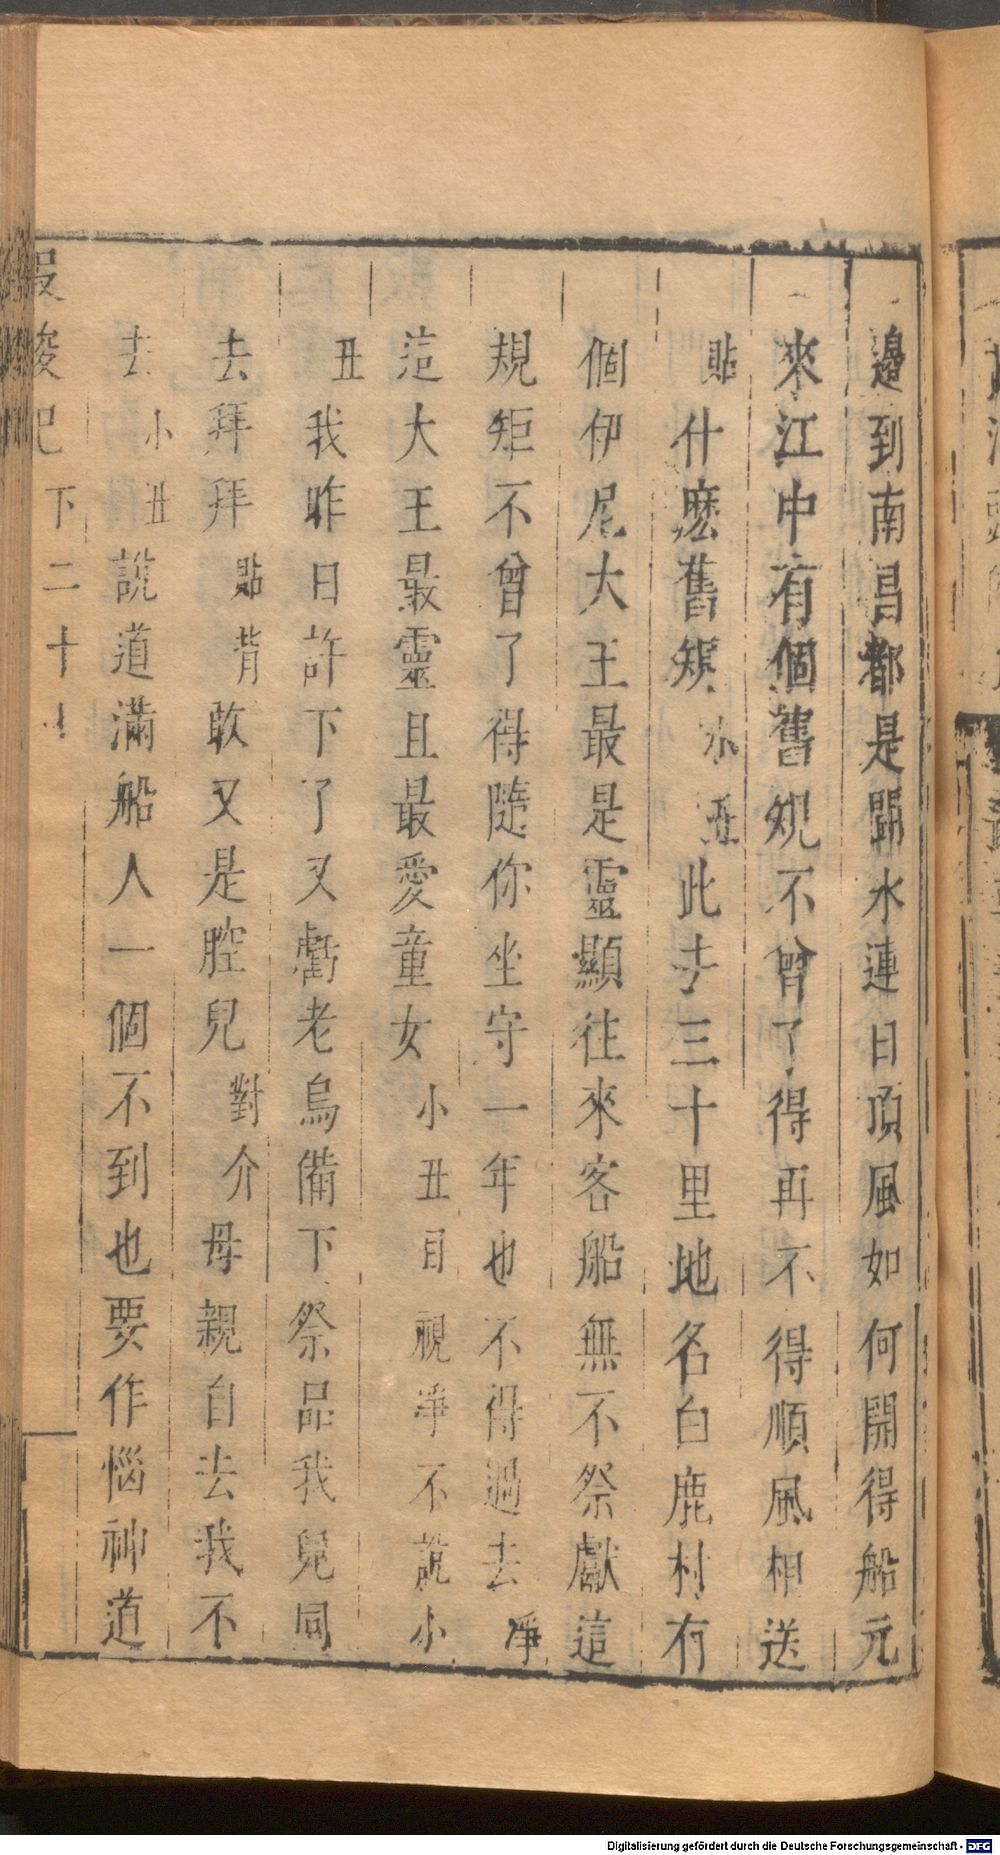 邊到南昌都是閘水連日頂風如何開得船元
來江中有個舊規不曾了得再不得順風相送
貼什麽舊規小丑此去三十里地名白鹿村有
個伊尼大王最是靈顯往來客船無不祭獻這
規矩不曾了得隨你坐守一年也不得過去淨
這大王最靈且最愛童女小丑目視淨不說小
丑我昨日許下了又虧老烏備下祭品我兒同
去拜拜貼背敢又是腔兒對介母親自去我不
去小丑說道滿船人一個不到也要作惱神道
投梭記
下二十
Digitalisierung gefördert durch die Deutsche Forschungsgemeinschaft - DFG